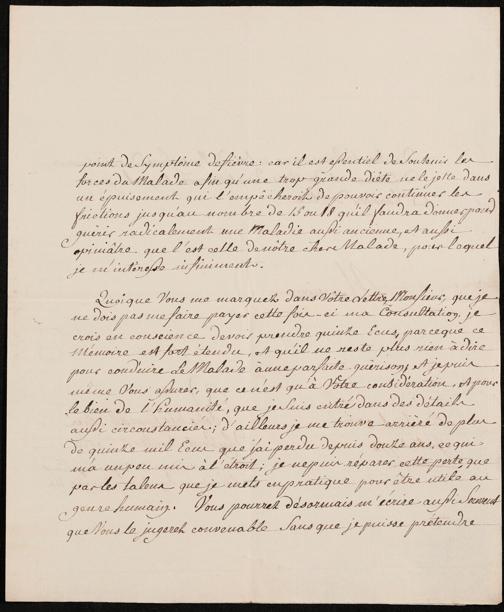 point de Symptôme de fièvre : car il est essentiel de Soutenir les
forces du Malade afin qu'une trop grande diéte ne le jette dans
un épuisement qui l'empêcheroit de pouvoir continuer les
frictions jusqu'au nombre de 15 ou 18 qu'il faudra donner pour
guérir radicalement une Maladie aussi ancienne, et aussi
opiniâtre que l'est celle de nôtre cher Malade, pour lequel
je m'intéresse infiniment.
Quoique Vous me marquez dans Vôtre Lettre, Monsieur, que je
ne dois pas me faire payer cette fois-ci ma Consultation, je
crois en conscience devoir prendre quinze Ecus, parceque ce
Mémoire est fort étendu, et qu'il ne reste plus rien à dire
pour conduire le Malade à une parfaite guérison; et je puis
même Vous assurer, que ce n'est qu'à Vôtre considération, et pour
le bien de l'humanité, que je suis entré dans des détails
aussi circonstanciés; d'ailleurs je me trouve arriéré de plus
de quinze mil Ecus que j'ai perdu depuis douze ans, ce qui
m'a un peu mis à l'étroit; je ne puis réparer cette perte que
par les talens que je mets en pratique pour être utile au
genre humain. Vous pourrez désormais m'écrire aussi Souvent
que Vous le jugerez convenable Sans que je puisse prétendre